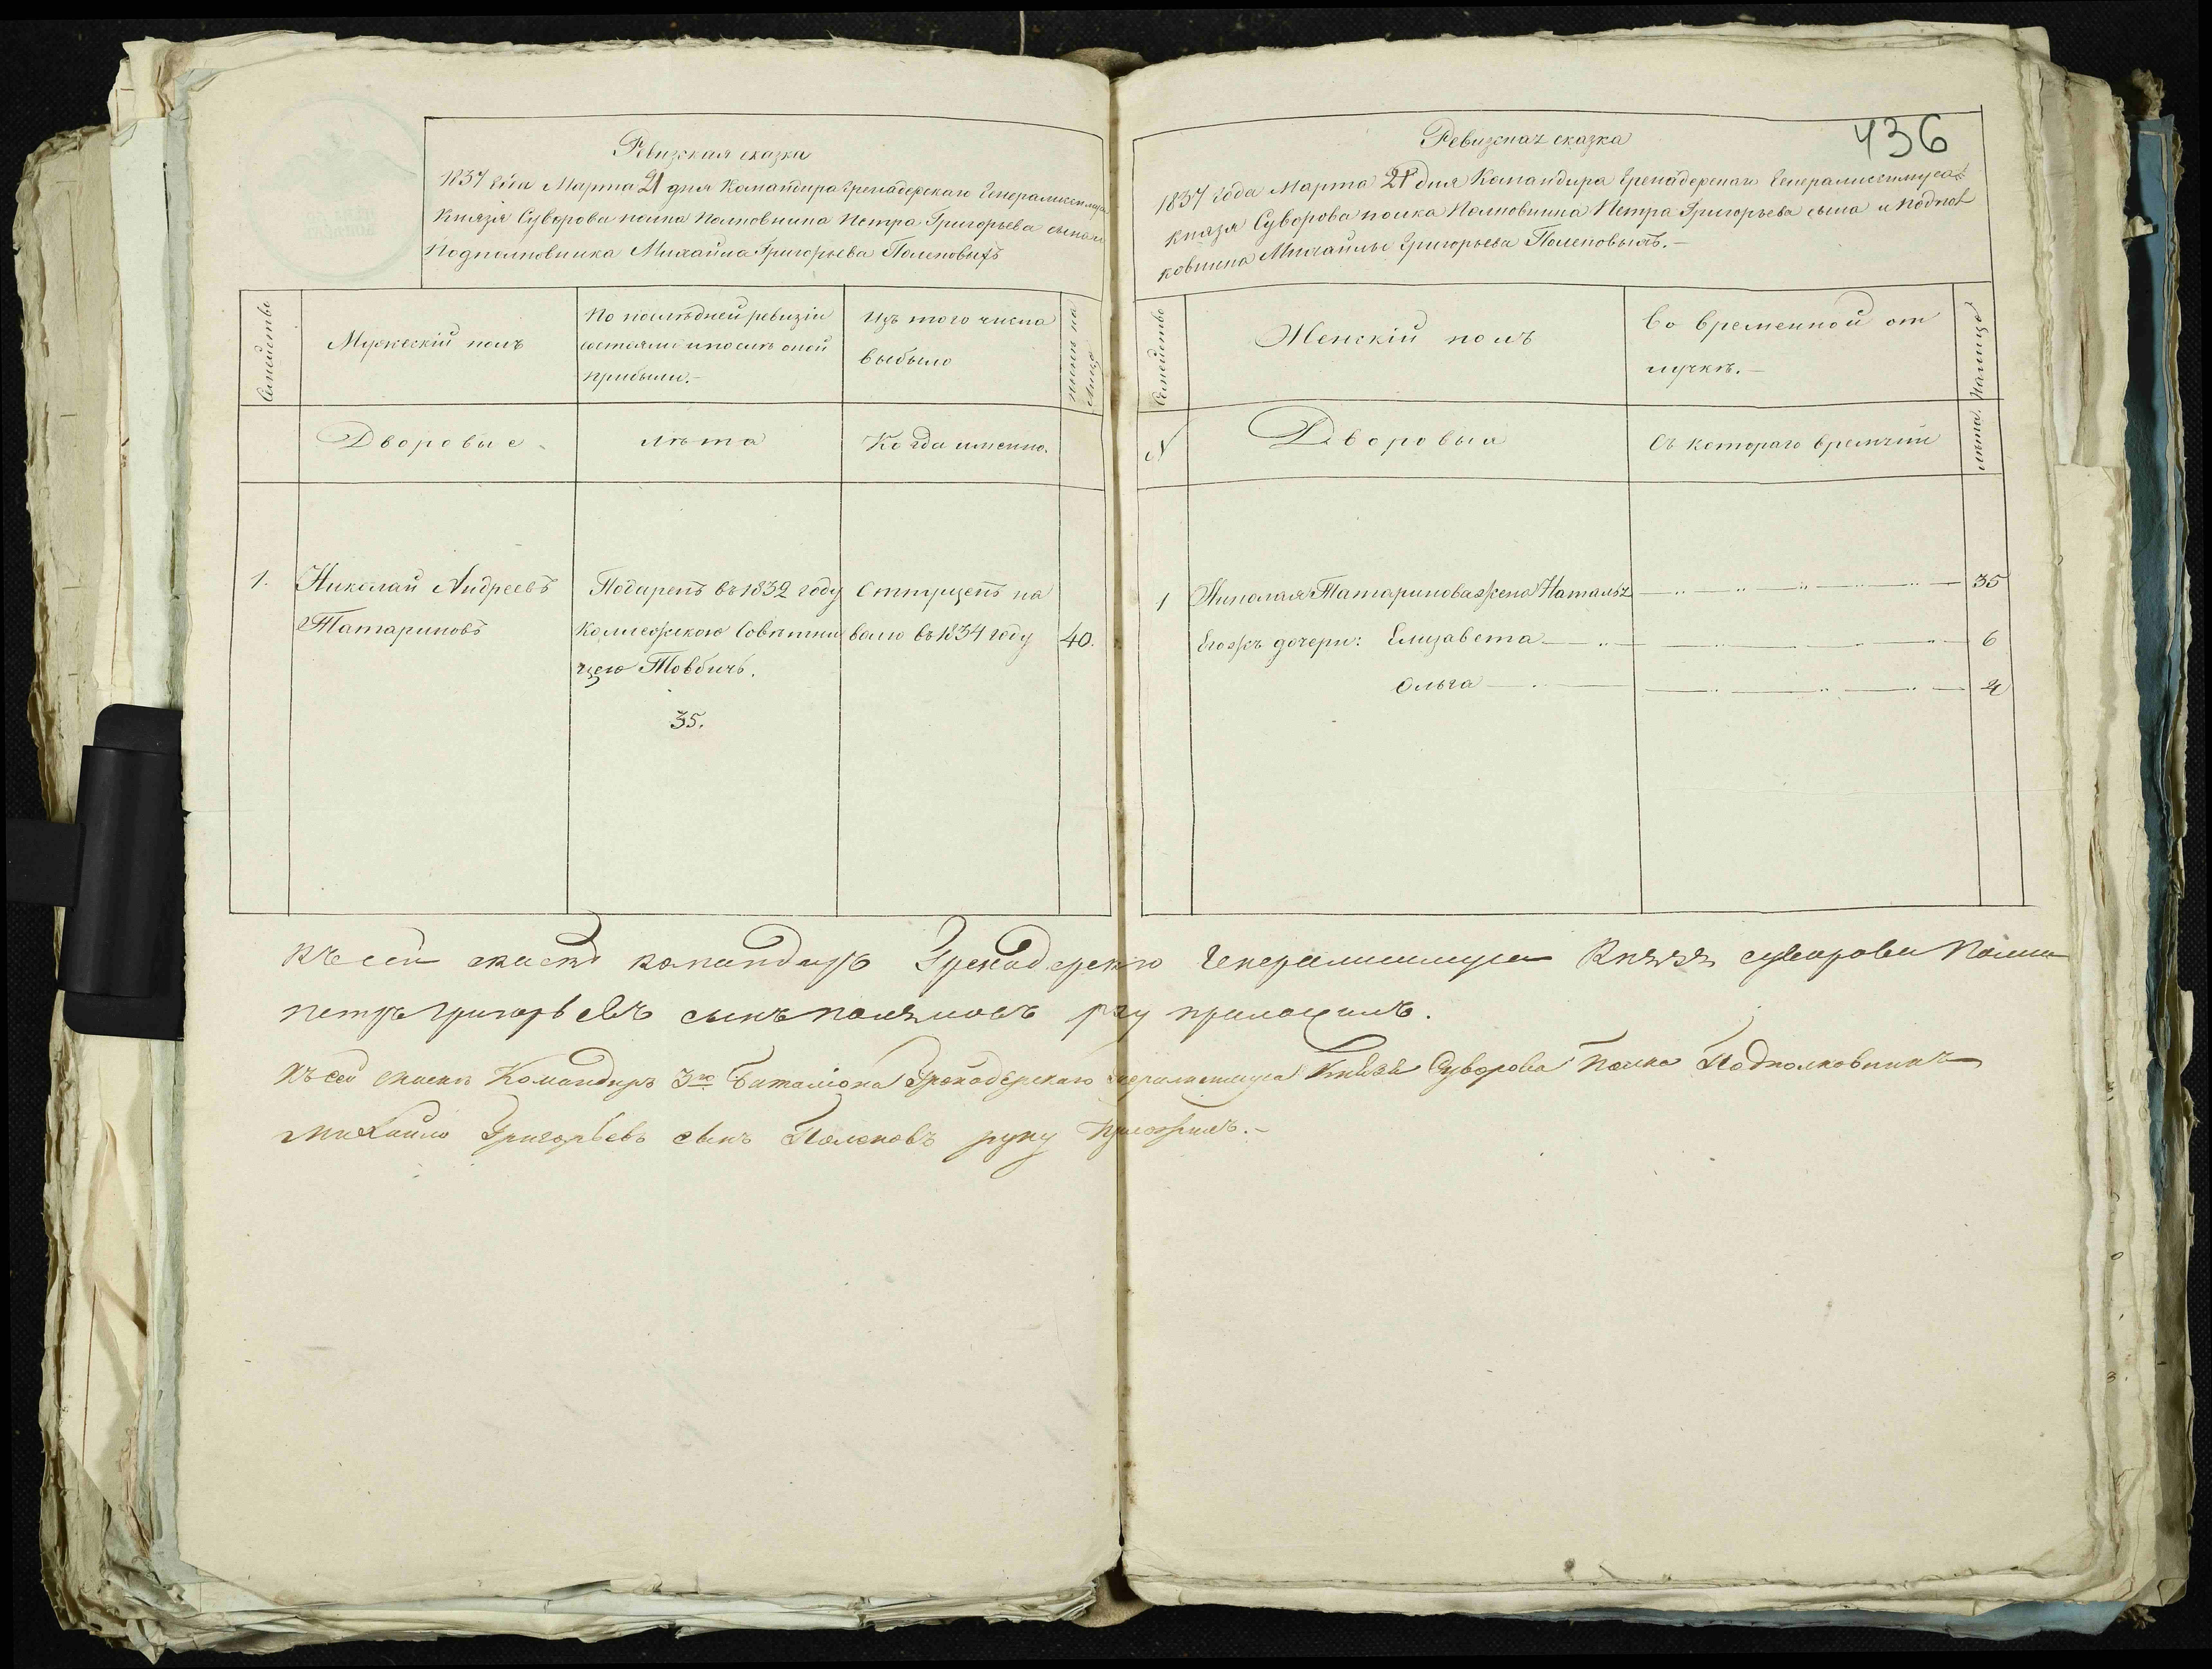 Ревизская сказка
1837 года Марта 21 дня Командира Гренадерскаго Генералисимуса
Князя Суворова полка Полковника Петра Григорьева сына и
Подполковника Михаила Григорьева Поленовыхъ
Семейство
Мужескій полъ
По послѣдней ревизіи
состояли и послѣ оной
прибыли.-
Изъ того числа
выбыло
нынѣ на
лицо
Дворовые
лѣта
Когда именно.
1.
Николай Андреевъ
Татариновъ
Подаренъ въ 1832 году
Колежскою Совѣтни
цею Товбичъ.
35.
Отпущенъ на
волю въ 1834 году
40.
436
Ревизская сказка
1837 года Марта 21 дня Командира Гренадерскаго Генералисимуса
Князя Суворова полка Полковника Петра Григорьева сына и Подпол
ковника Михаилы Григорьева Поленовыхъ.-
Семейство
Женскій полъ
Во временной от
лучкѣ.-
Налицо
N
Дворовыя
Съ котораго времени
лѣта.
1
Николая Татаринова жена Наталья
35
Егожъ дочери: Елизавета
6
Ольга
4
Къ сей скаске командиръ Гренадерскаго Генералисимуса Князя Суворова Полка
Петръ Григорьевъ сынъ Поленовъ руку приложилъ.
Къ сей скаскѣ Командиръ 3го Баталіона Гренадерскаго Генералисимуса Князя Суворова Полка Подполковникъ
Михайло Григорьевъ сынъ Поленовъ руку приложилъ.-